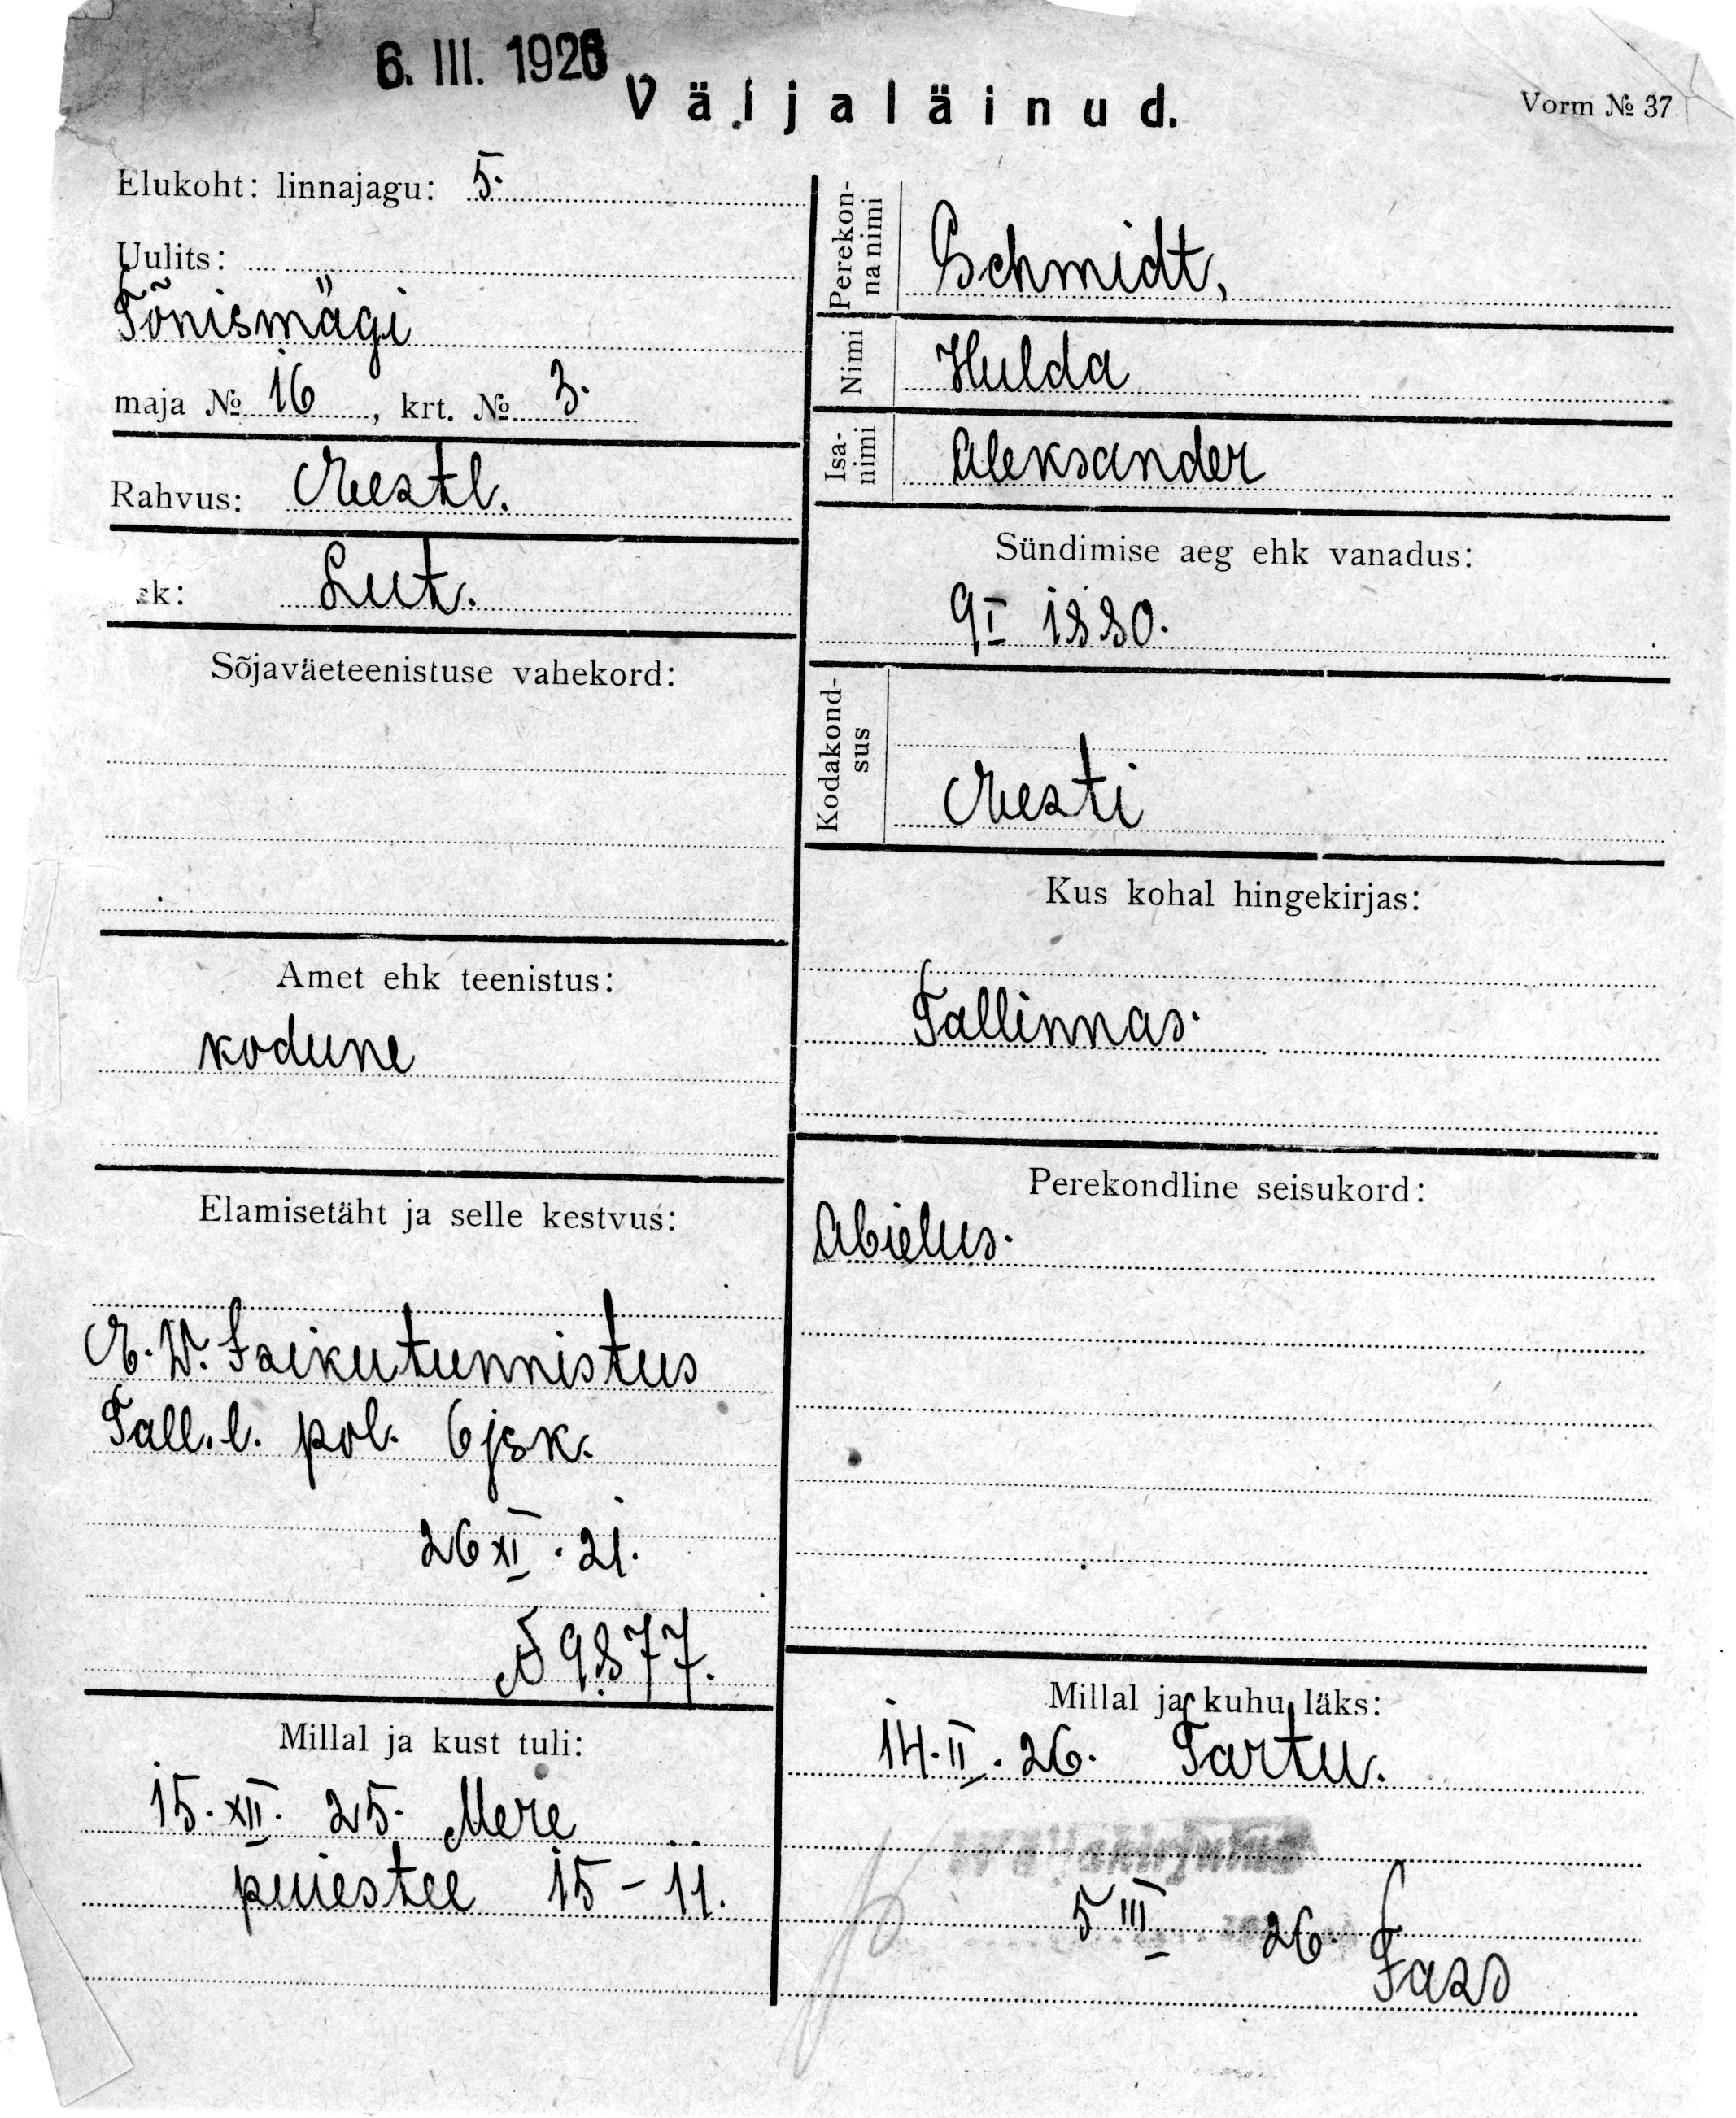 6. III. 1926
Väljaläinud.
Vorm № 37
Elukoht: linnajagu: 5.
Uulits:
Tõnismägi
maja № 16, krt. № 3.
Rahvus: Eestl.
sk: Lut.
Sõjaväeteenistuse vahekord:
Amet ehk teenistus:
kodune
Elamisetäht ja selle kestvus:
E. W. Isikutunnistus
Tall. l. pol. 6 jsk.
26 XI. 21.
№ 9877.
Millal ja kust tuli:
15. XII. 25. Mere
puiestee 15 – 11.
Perekon-
na nimi
Schmidt,
Nimi
Hulda
Isa-
nimi
Aleksander
Sündimise aeg ehk vanadus:
9 I 1880.
Kodakond-
sus
Eesti
Kus kohal hingekirjas:
Tallinnas.
Perekondline seisukord:
Abielus.
Millal ja kuhu läks:
14. II. 26. Tartu.
Väljakirjutus
5 III 26.